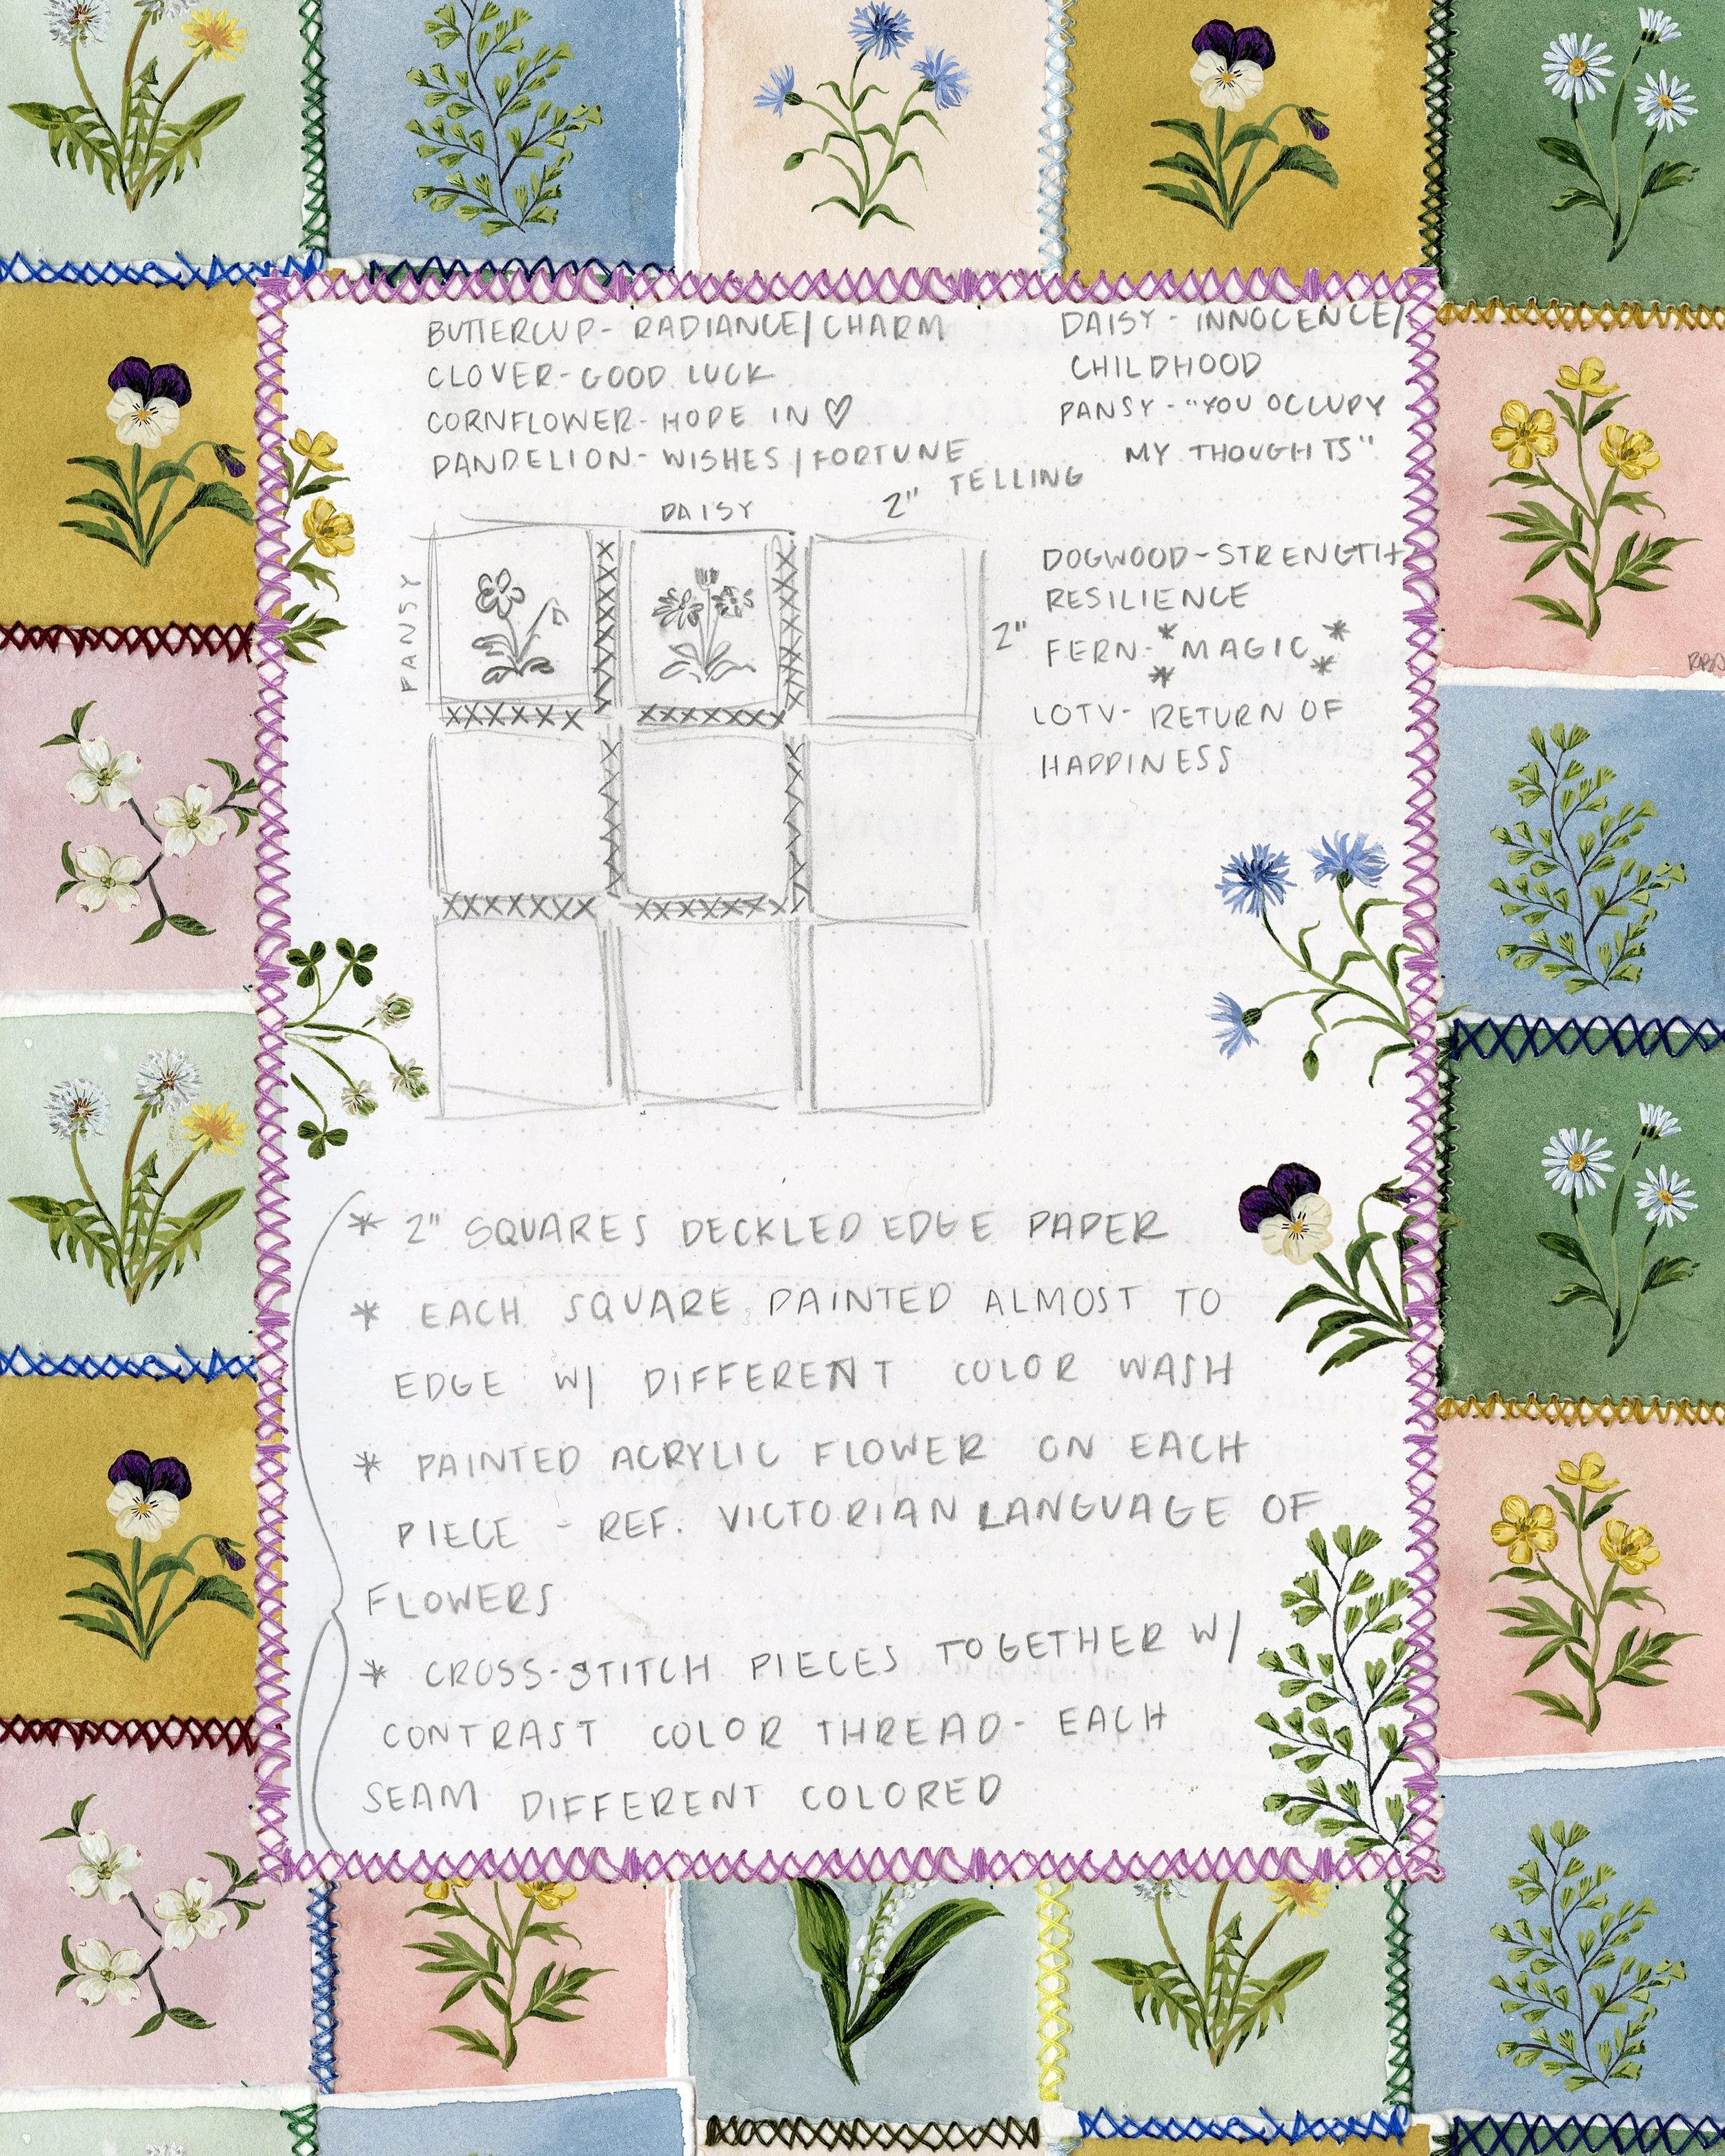 BUTTERCUP- RADIANCE/CHARM
CLOVER-GOOD LUCK
CORNFLOWER- HOPE IN ♡
DANDELION- WISHES/FORTUNE
TELLING
DAISY - INNOCENCE/
CHILDHOOD
PANSY - "YOU OCCUPY
MY THOUGHTS"
DAISY
2"
PANSY
2"
DOGWOOD-STRENGTH
RESILIENCE
FERN- *MAGIC* * *
LOTV- RETURN OF
HAPPINESS
* 2" SQUARES DECKLED EDGE PAPER
* EACH SQUARE PAINTED ALMOST TO
EDGE W/ DIFFERENT COLOR WASH
* PAINTED ACRYLIC FLOWER ON EACH
PIECE - REF. VICTORIAN LANGUAGE OF
FLOWERS
* CROSS-STITCH PIECES TOGETHER W/
CONTRAST COLOR THREAD- EACH
SEAM DIFFERENT COLORED